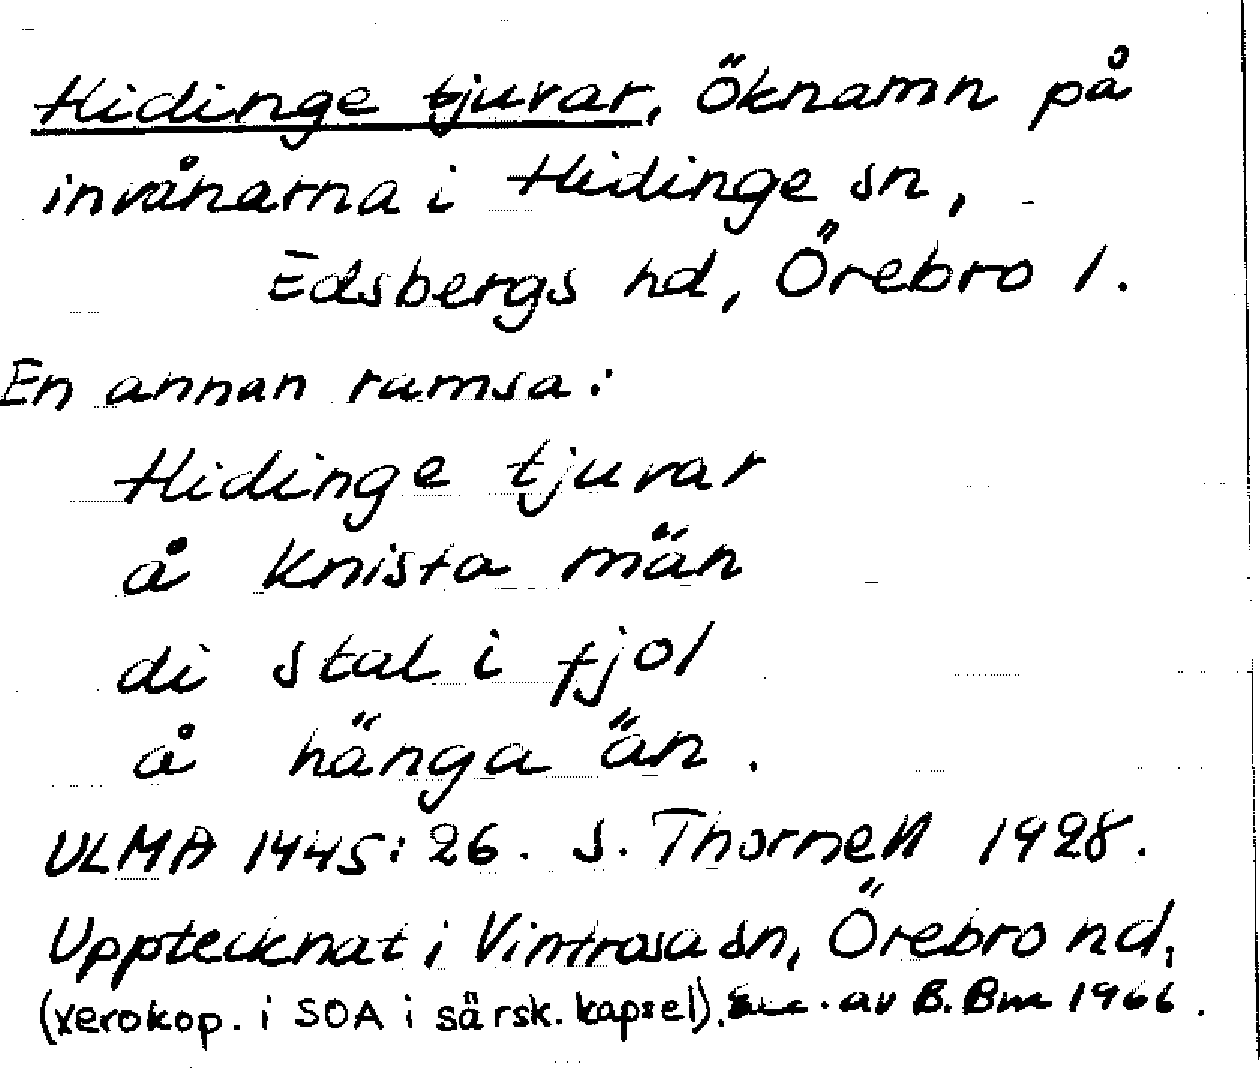 Hidinge tjuvar, Öknamn på
invånarna i Hidinge sn,
Edsbergs hd, Örebro l.
En annan ramsa:
Hidinge tjuvar
å Knista män
di stal i fjol
å hänga än.
ULMA 1445:26. S. Thornell 1928.
Upptecknat i Vintrosa sn, Örebro hd,
(xerokop. i SOA i särsk. kapsel). Exc. av B. Bm 1966.